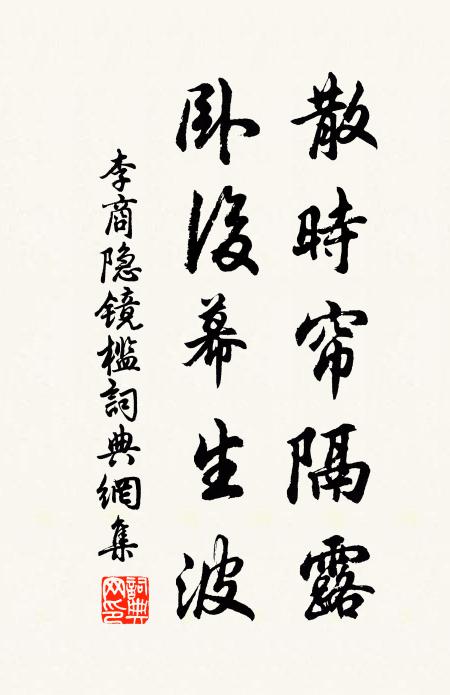 散時帘隔露
卧後幕生波
李商隐鏡檻詞典網集
詞典網印